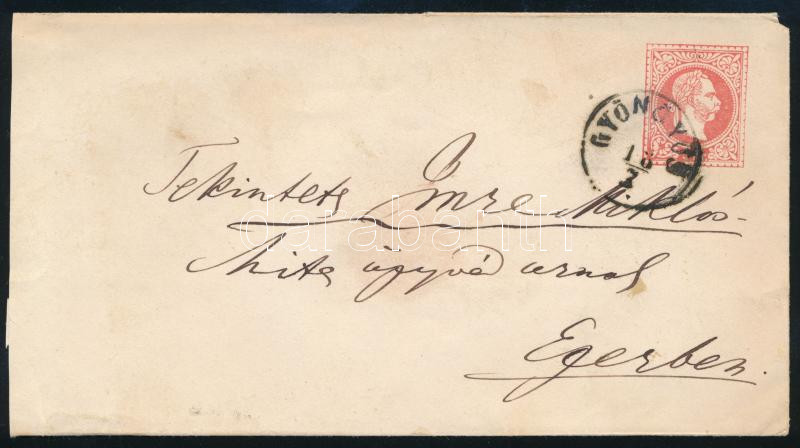 GYÖNGYÖS
18/3
Tekintetes Imre Miklós
hites ügyvéd urnak
Egerben.
darabanth